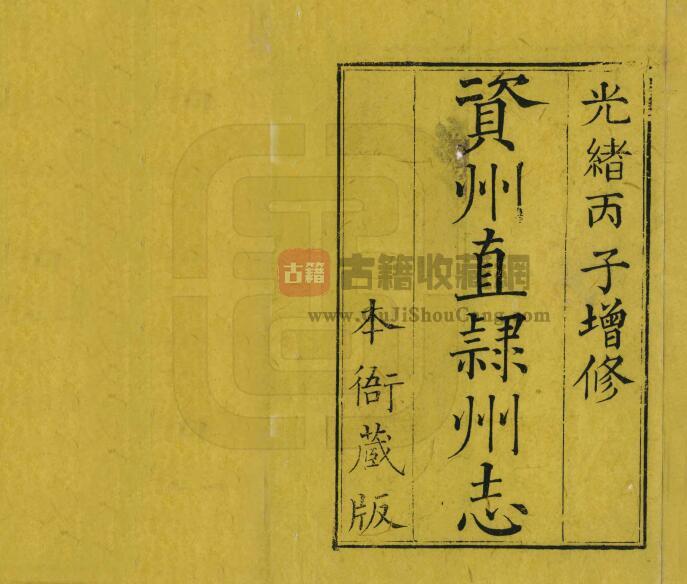 光緒丙子增修
資州直隸州志
本衙蔵版
古籍
古籍收藏網
www.GuJiShouCang.com